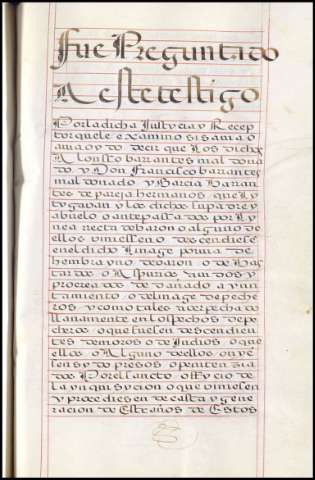 fue Preguntado
A este testigo
Por la dicha Justycia y Recep
tor que le examino si sauia o
auia oydo decir que Los dichos
Alonsso barrantes maldona
do y Don francisco barantes
maldonado y Garcia baran
tes de pareja hermanos que ly
tygauan y los dichos su padre y
abuelo o antepassados por ly
nea recta de baron o alguno de
ellos viniessen o descendiesse
en el dicho linage por via de
hembra y no de baron o de bas
tardos o Aspurios auidos y
procreados de dañado ayun
tamiento o de linage de peche
ros y como tales ayan pechado
llanamente en los pechos de pe
cheros o que fuesen descendien
tes de moros o de Judios o que
ellos o Alguno dellos ouye
sen sydo presos o penitenzia
dos Por el sancto officio de
la ynquisycion o que viniesen
y procediesen de casta y gene
racion de Estraños de Estos